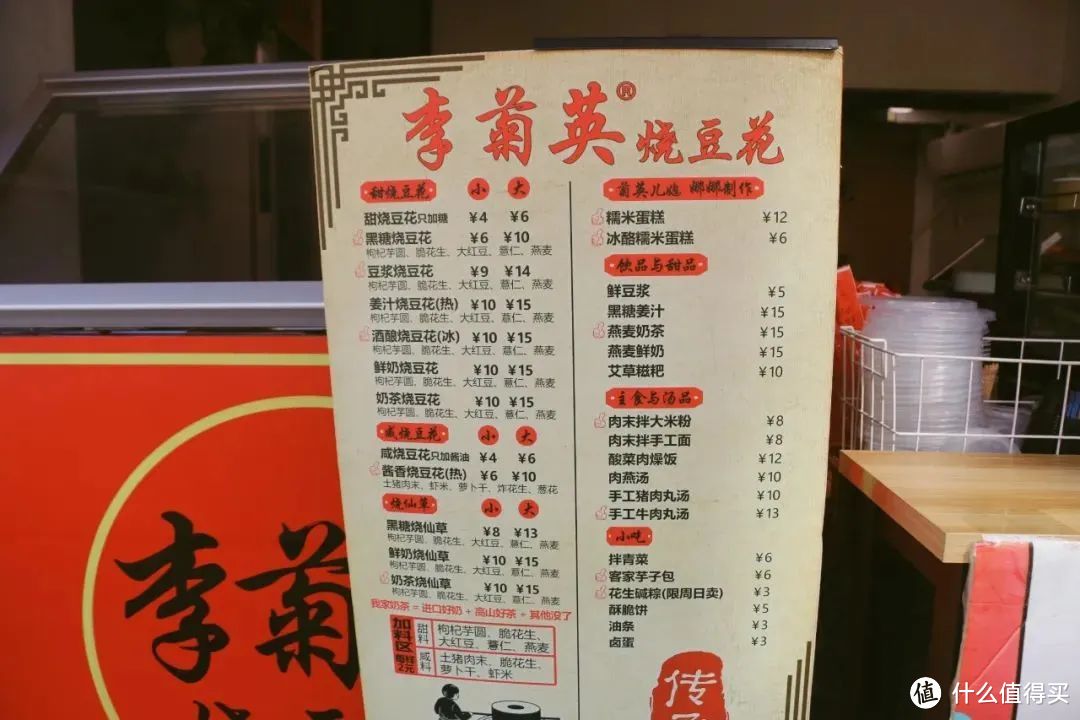 李菊英®烧豆花
甜烧豆花 小 大
甜烧豆花只加糖 ¥4 ¥6
黑糖烧豆花 ¥6 ¥10
枸杞芋圆、脆花生、大红豆、薏仁、燕麦
豆浆烧豆花 ¥9 ¥14
枸杞芋圆、脆花生、大红豆、薏仁、燕麦
姜汁烧豆花(热) ¥10 ¥15
枸杞芋圆、脆花生、大红豆、薏仁、燕麦
酒酿烧豆花(冰) ¥10 ¥15
枸杞芋圆、脆花生、大红豆、薏仁、燕麦
鲜奶烧豆花 ¥10 ¥15
枸杞芋圆、脆花生、大红豆、薏仁、燕麦
奶茶烧豆花 ¥10 ¥15
枸杞芋圆、脆花生、大红豆、薏仁、燕麦
咸烧豆花 小 大
咸烧豆花只加酱油 ¥4 ¥6
酱香烧豆花(热) ¥6 ¥10
土猪肉末、虾米、萝卜干、炸花生、葱花
烧仙草 小 大
黑糖烧仙草 ¥8 ¥13
枸杞芋圆、脆花生、大红豆、薏仁、燕麦
鲜奶烧仙草 ¥10 ¥15
枸杞芋圆、脆花生、大红豆、薏仁、燕麦
奶茶烧仙草 ¥10 ¥15
枸杞芋圆、脆花生、大红豆、薏仁、燕麦
我家奶茶=进口好奶+高山好茶+其他没了
加料区 每样2元
甜料 枸杞芋圆、脆花生、
大红豆、薏仁、燕麦
咸料 土猪肉末、脆花生、
萝卜干、虾米
菊英儿媳 娜娜制作
糯米蛋糕 ¥12
冰酪糯米蛋糕 ¥6
饮品与甜品
鲜豆浆 ¥5
黑糖姜汁 ¥15
燕麦奶茶 ¥15
燕麦鲜奶 ¥15
艾草糍粑 ¥10
主食与汤品
肉末拌大米粉 ¥8
肉末拌手工面 ¥8
酸菜肉燥饭 ¥12
肉燕汤 ¥10
手工猪肉丸汤 ¥10
手工牛肉丸汤 ¥13
小吃
拌青菜 ¥6
客家芋子包 ¥6
花生碱粽(限周日卖) ¥3
酥脆饼 ¥5
油条 ¥3
卤蛋 ¥3
传
李菊
值 什么值得买